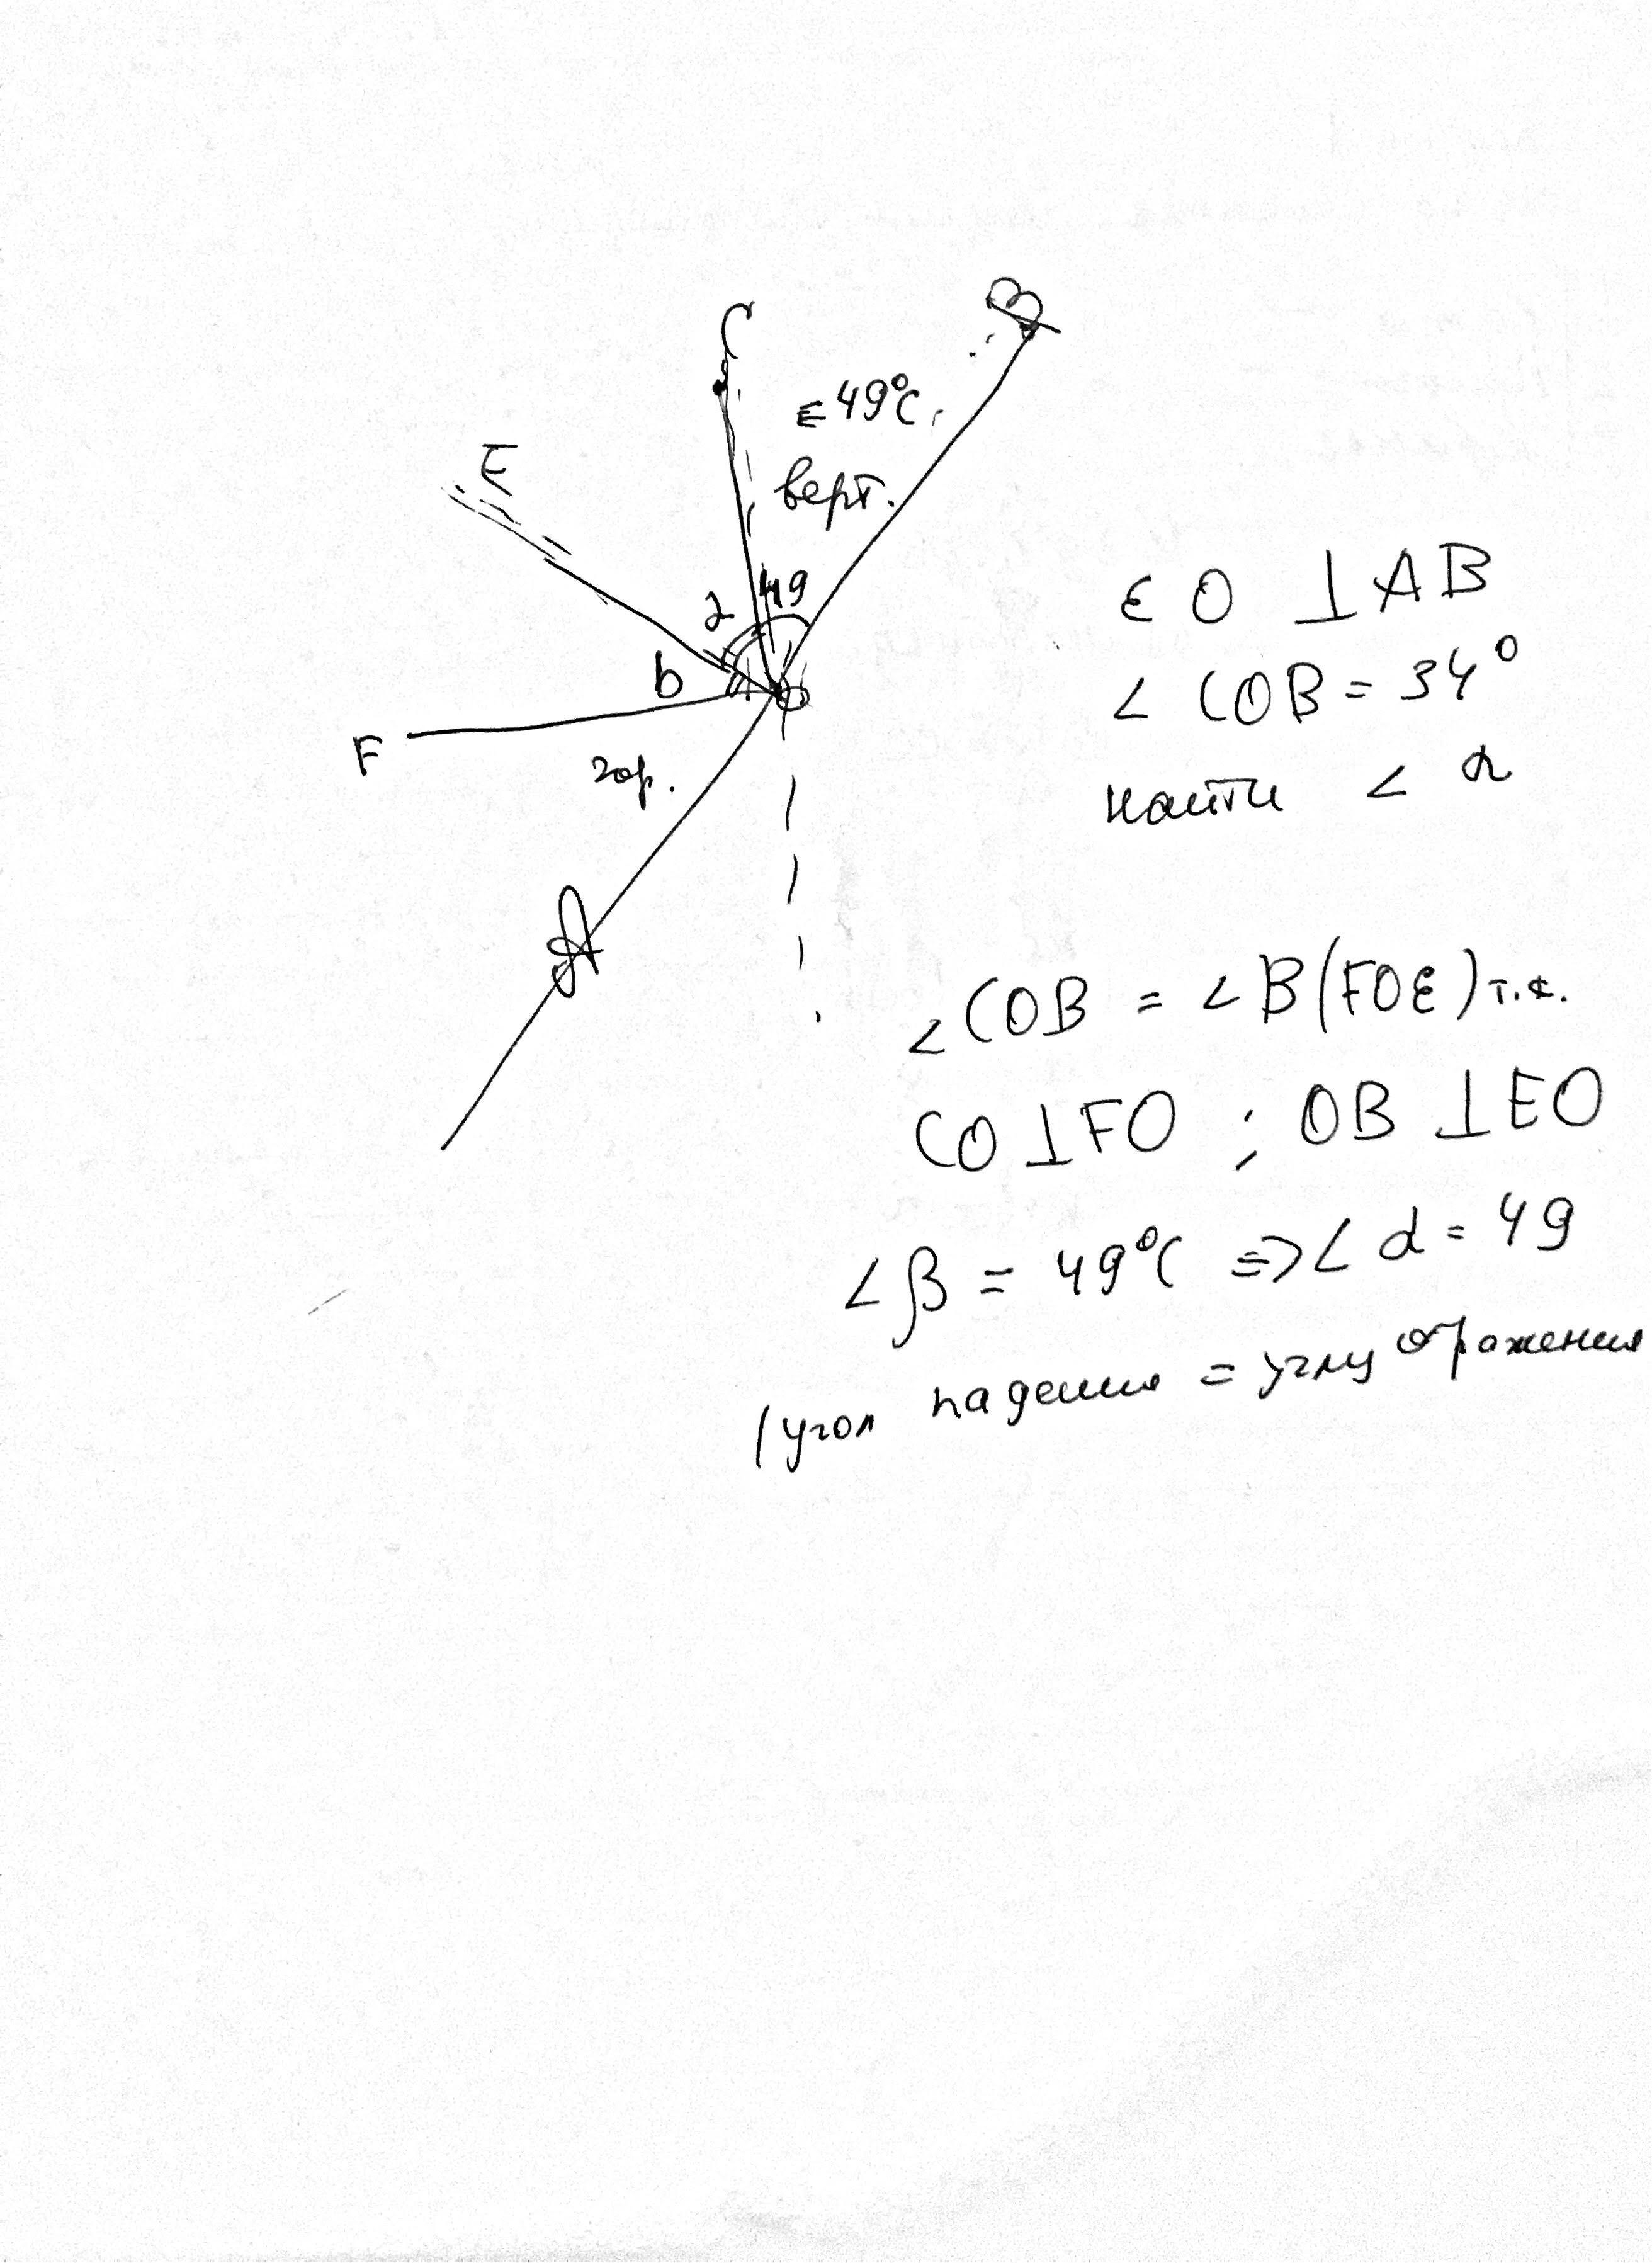 C
B
∈ 49°C.
верт.
E
α 49
b
O
F
гор.
A
ε O ⊥ AB
∠ COB = 34°
найти ∠ α
∠COB = ∠B(FOE) т.к.
CO ⊥ FO ; OB ⊥ EO
∠β = 49°C => ∠ α = 49
(угол падения = углу отражения